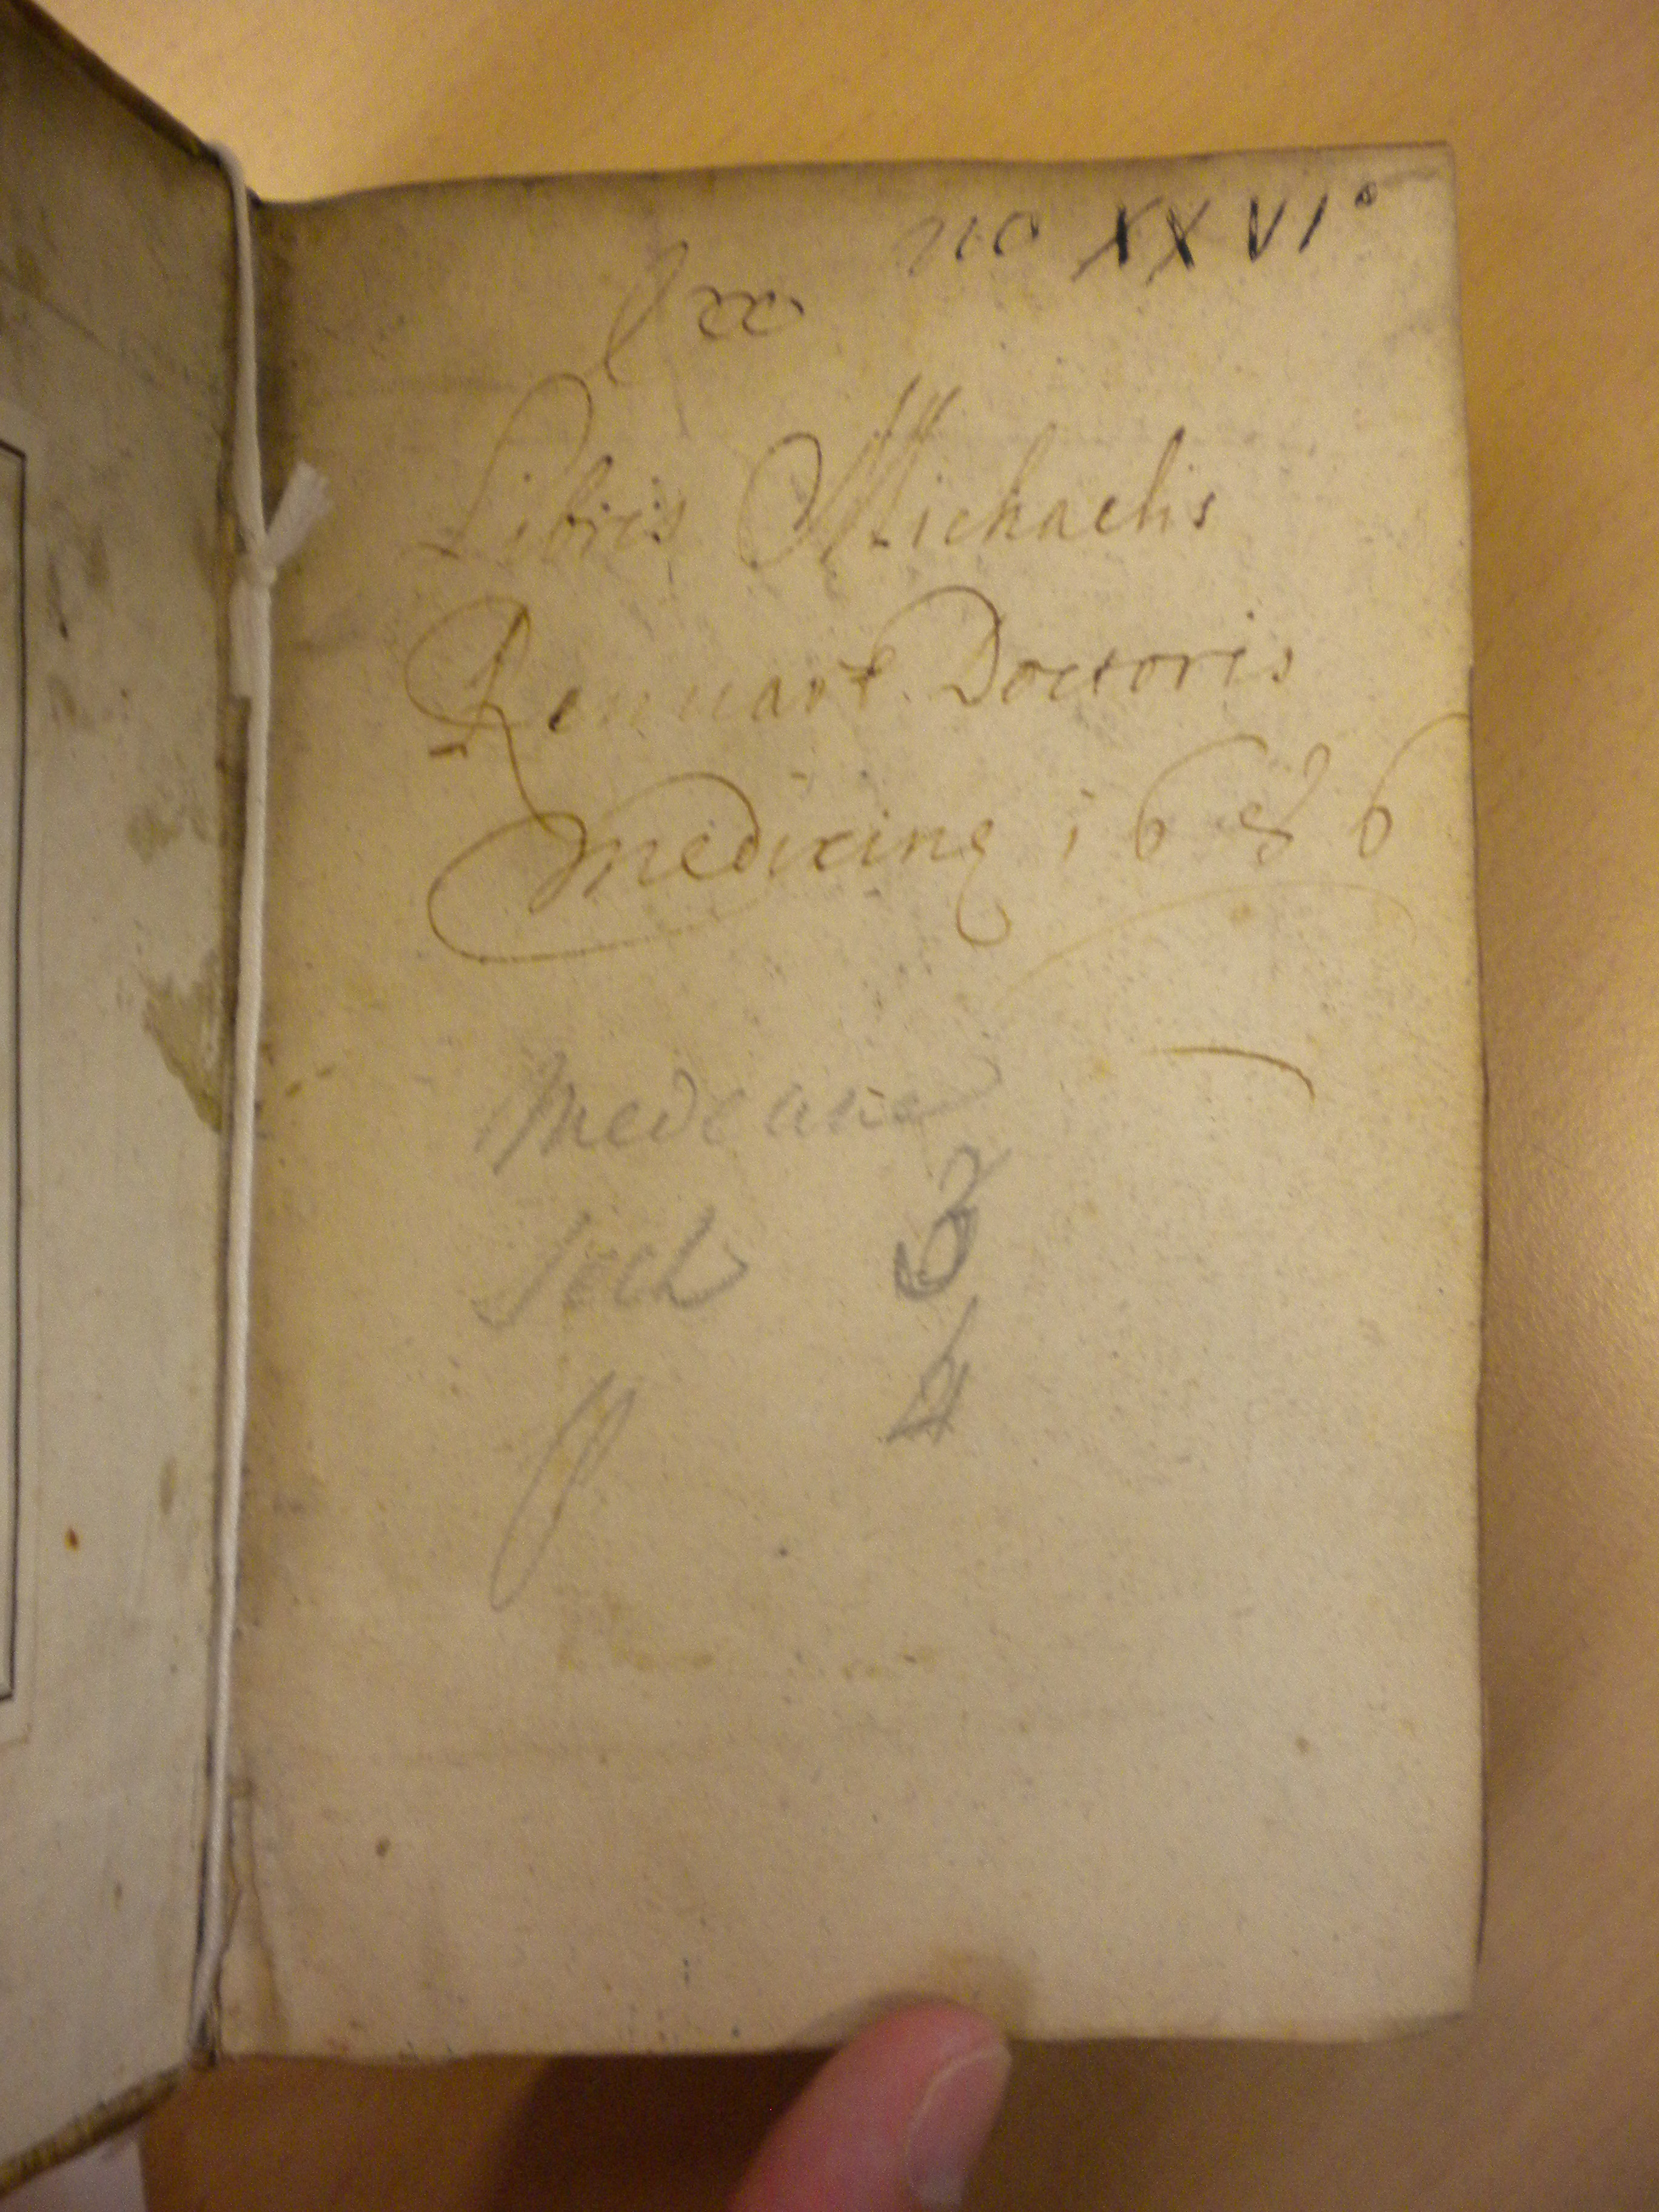 no XXVI°
Ex
Libris Michaelis
Rennart Doctoris
Medicinę 1686
Medecine
3
4